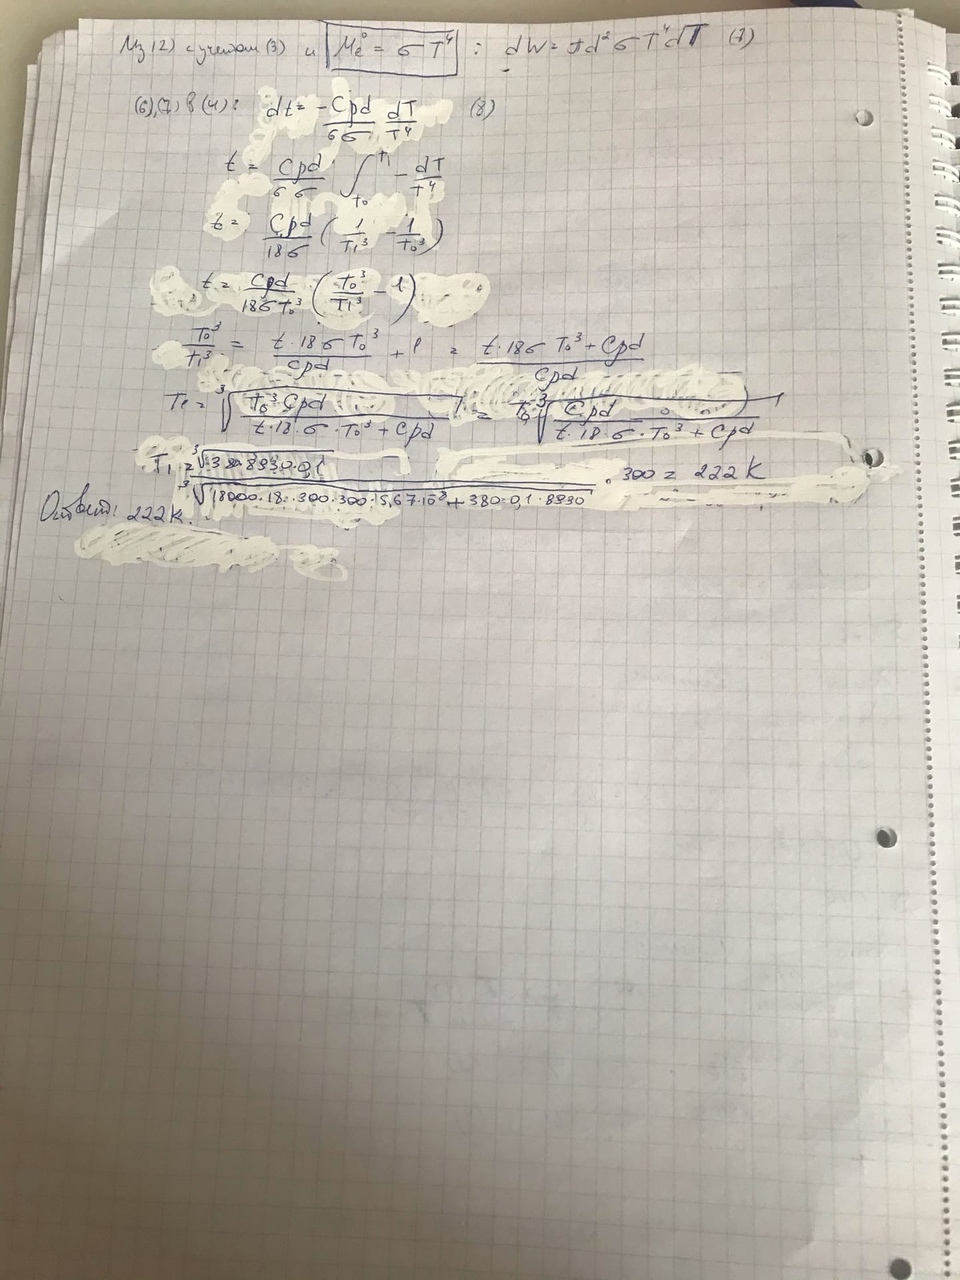 Из (2) с учетом (3) и Mₑ⁰ = σ T⁴ : dW = πd² σ T⁴ dT (7)
(6),(7) в (4): dt = - Cρd/6σ dT/T⁴ (8)
t = Cρd/6σ ∫_T₀^T₁ - dT/T⁴
t = Cρd/18σ (1/T₁³ - 1/T₀³)
t = Cρd/18σT₀³ (T₀³/T₁³ - 1)
T₀³/T₁³ = t·18σT₀³/Cρd + 1 = t·18σT₀³ + Cρd/Cρd
T₁ = ³√(T₀³ Cρd/t·18·σ·T₀³ + Cρd) = T₀ ³√(Cρd/t·18·σ·T₀³ + Cρd)
T₁ = ³√380·8930·0,1/³√18000·18·300·300·5,67·10⁸ + 380·0,1·8930 · 300 = 222 K
Ответ: 222 K.